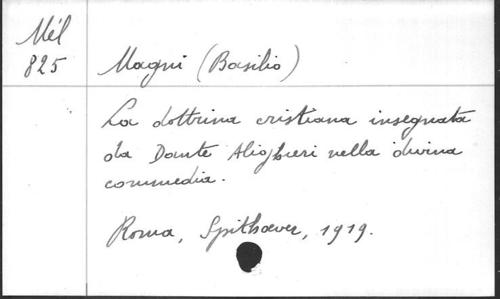 Mél
825
Magni (Basilio)
La dottrina cristiana insegnata
da Dante Alighieri nella divina
commedia.
Roma, Spithœver, 1919.